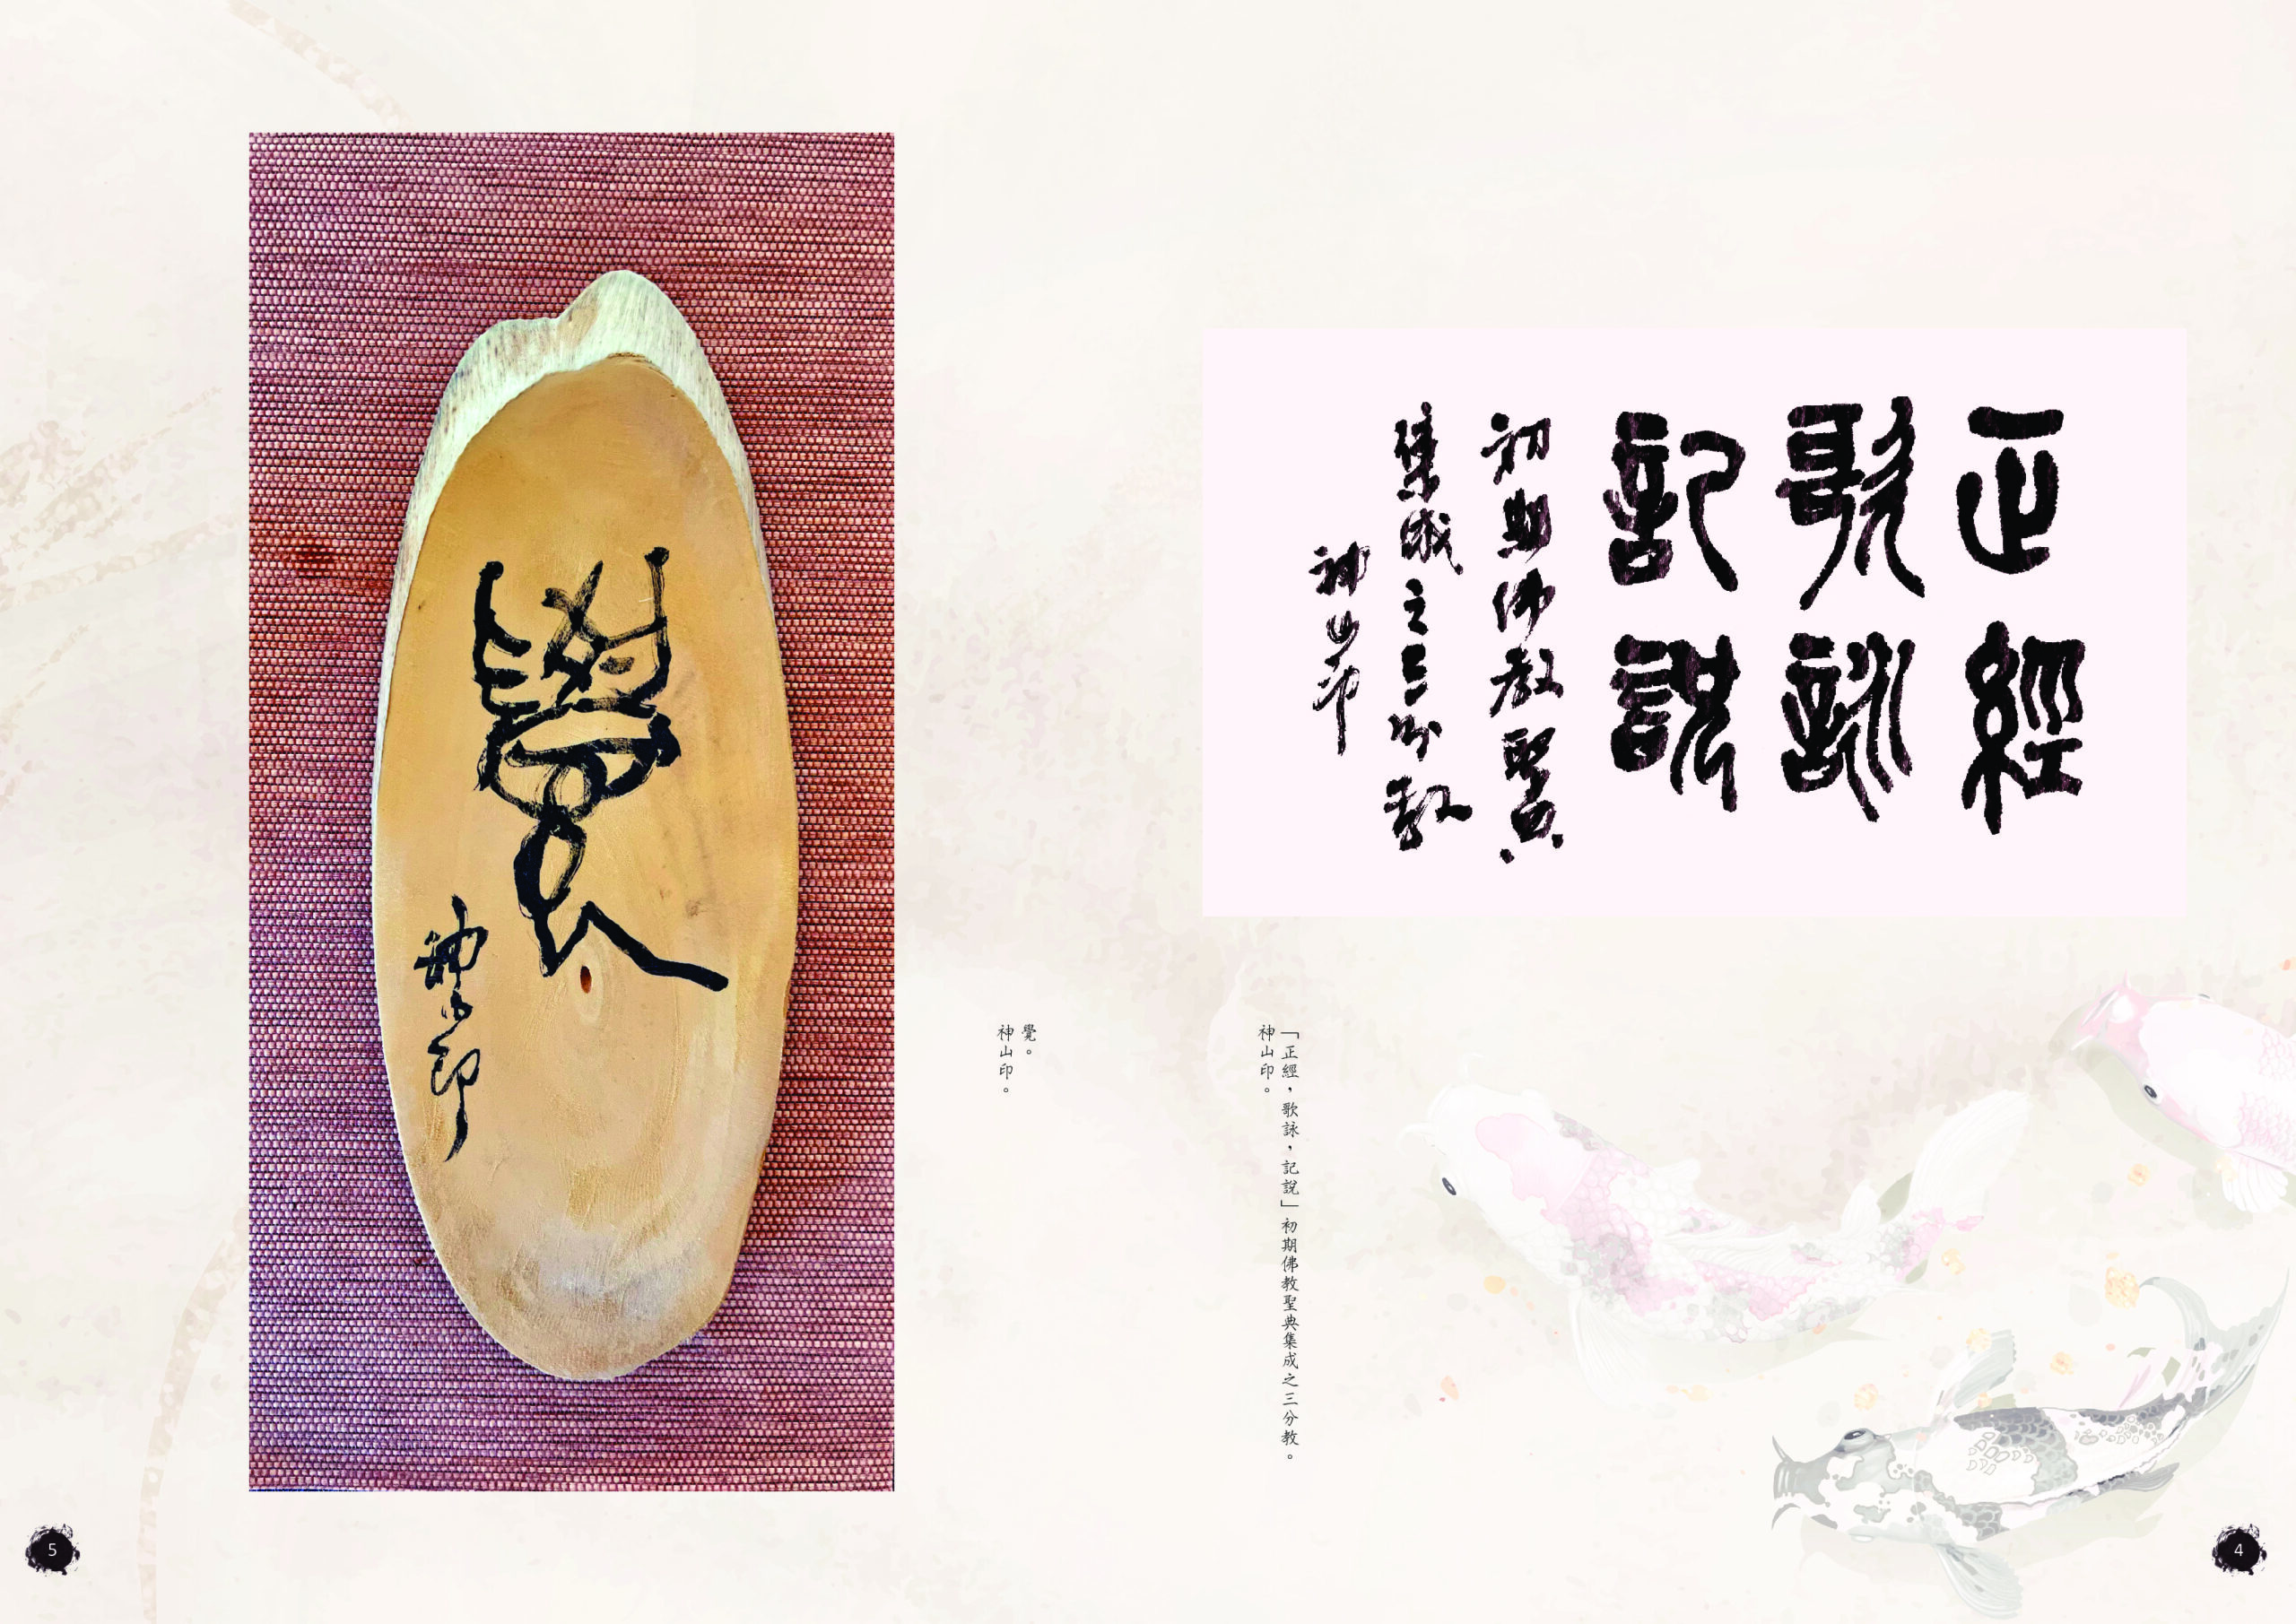 正經
歌詠
記說
初期佛教聖典
集成之三分教
神山印
「正經，歌詠，記說」初期佛教聖典集成之三分教。
神山印。
4
覺
神山印
覺。
神山印。
5